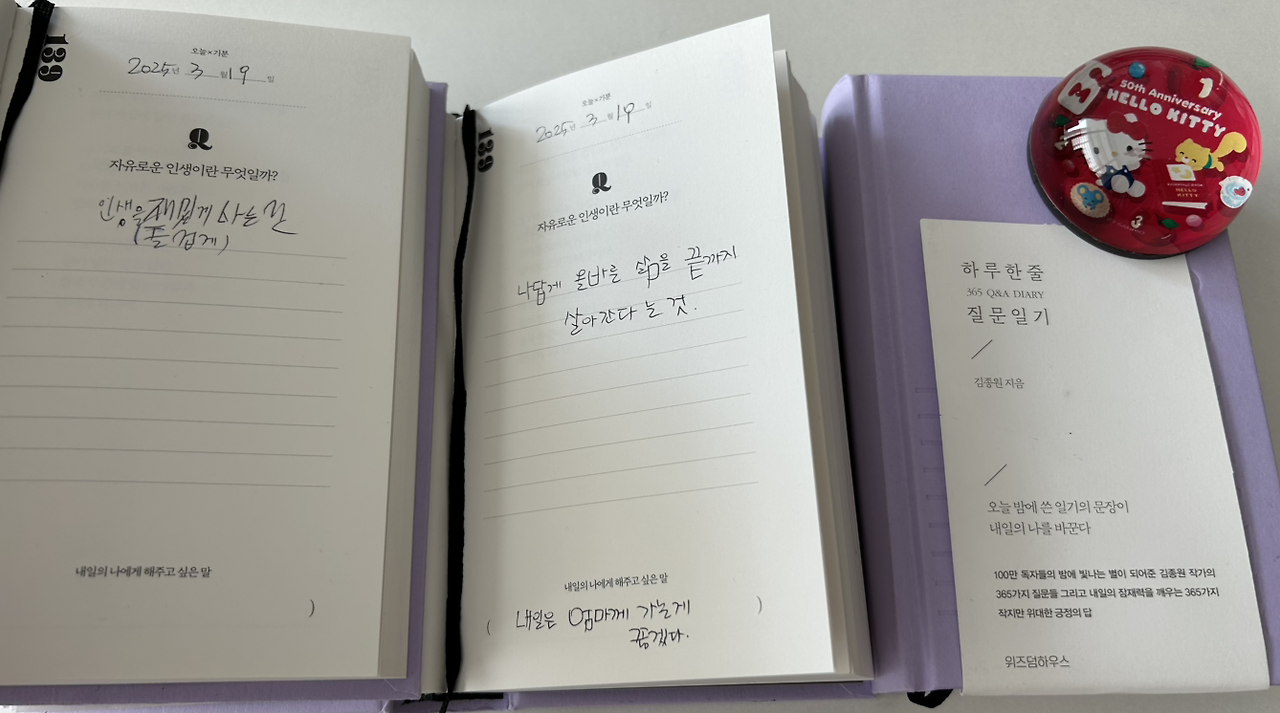 139
오늘×기분
2025년 3월 19일
자유로운 인생이란 무엇일까?
인생을 재밌게 사는 것
(즐겁게)
내일의 나에게 해주고 싶은 말
)
139
오늘×기분
2025년 3월 19일
자유로운 인생이란 무엇일까?
나답게 올바른 삶을 끝까지
살아간다는 것.
내일의 나에게 해주고 싶은 말
( 내일은 엄마께 가는게 )
좋겠다.
50th Anniversary
HELLO KITTY
HELLO
KITTY
하루한줄
365 Q&A DIARY
질문일기
김종원 지음
오늘 밤에 쓴 일기의 문장이
내일의 나를 바꾼다
100만 독자들의 밤에 빛나는 별이 되어준 김종원 작가의
365가지 질문들 그리고 내일의 잠재력을 깨우는 365가지
작지만 위대한 긍정의 답
위즈덤하우스